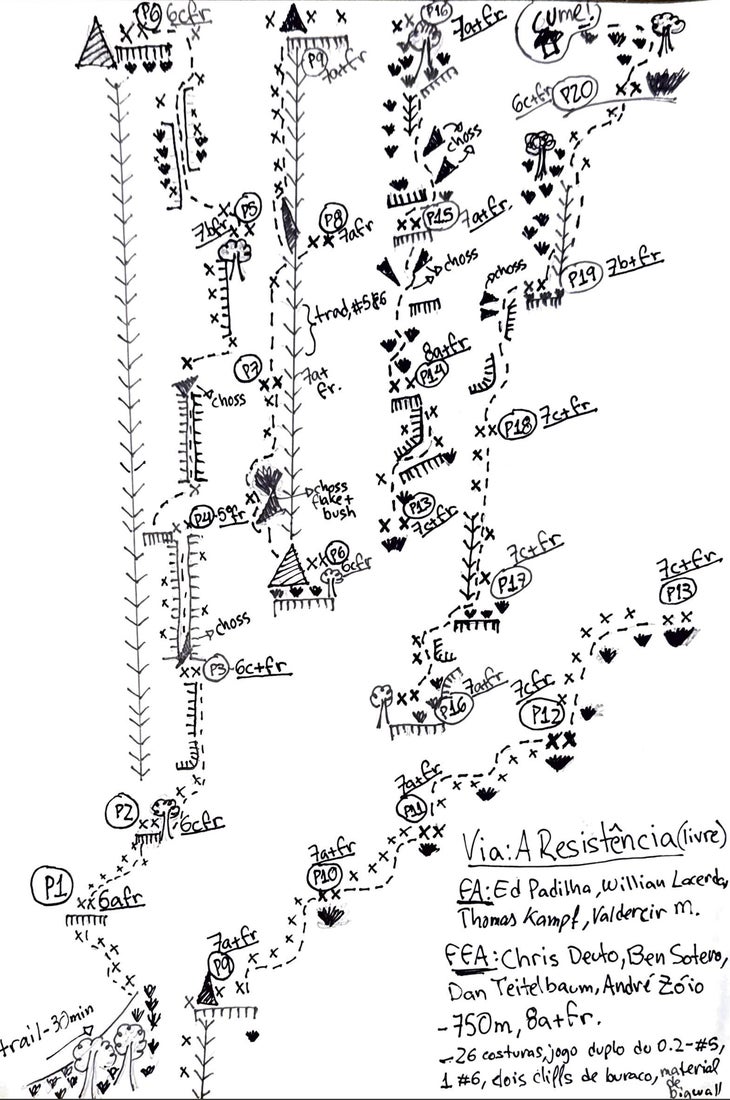 P6 6cfr
P5
7bfr
choss
P4-5ºfr
choss
P3-6c+fr
P2
6cfr
P1
6afr
trail-30min
P9
7a+fr
P8
7afr
trad,#5&6
P7
7a+
fr.
choss
flake+
bush
P6
6cfr
P16
7a+fr
choss
P15 7a+fr.
choss
8a+fr
P14
P13
7c+fr
CUME!
6c+fr P20
P19 7b+fr
choss
P18 7c+fr
7c+fr
P17
7a+fr
P16
7c+fr
P13
7cfr
P12
7a+fr
P11
7a+fr
P10
7a+fr
P9
Via: A Resistência (livre)
FA: Ed Padilha, Willian Lacerda,
Thomas Kampf, Valdercir M.
FFA: Chris Deuto, Ben Sotero,
Dan Teitelbaum, André Zóio
-750m, 8a+fr.
-26 costuras, jogo duplo do 0.2-#5,
1 #6, dois cliffs de buraco, material
de
bigwall